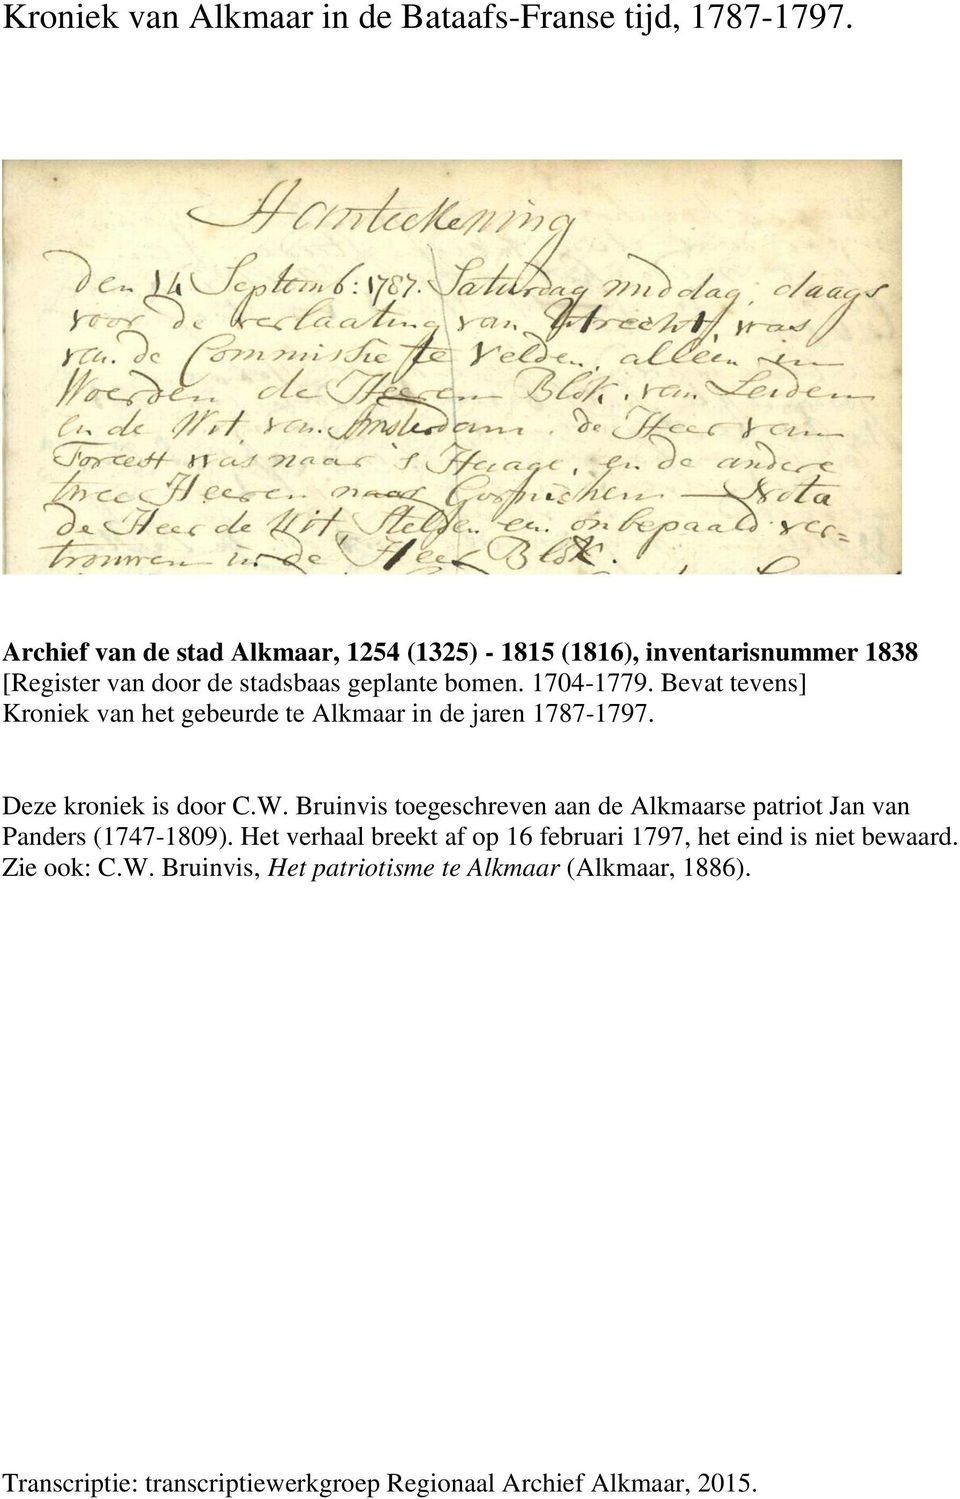 Kroniek van Alkmaar in de Bataafs-Franse tijd, 1787-1797.
Aanteekening
den 14 Septemb: 1787. Saturdag middag, daags
voor de verlaating van Utrecht, was
van de Commissie te Velden, alleen in
Woerden de Heeren Blok, van Leiden
en de Wit, van Amsterdam, de Heer van
Foreest was naar s Haage, en de andere
twee Heeren naar Gornichem — Nota
de Heer de Wit, stelden een onbepaald ver=
trouwen in de Heer Blok.
Archief van de stad Alkmaar, 1254 (1325) - 1815 (1816), inventarisnummer 1838
[Register van door de stadsbaas geplante bomen. 1704-1779. Bevat tevens]
Kroniek van het gebeurde te Alkmaar in de jaren 1787-1797.
Deze kroniek is door C.W. Bruinvis toegeschreven aan de Alkmaarse patriot Jan van
Panders (1747-1809). Het verhaal breekt af op 16 februari 1797, het eind is niet bewaard.
Zie ook: C.W. Bruinvis, Het patriotisme te Alkmaar (Alkmaar, 1886).
Transcriptie: transcriptiewerkgroep Regionaal Archief Alkmaar, 2015.